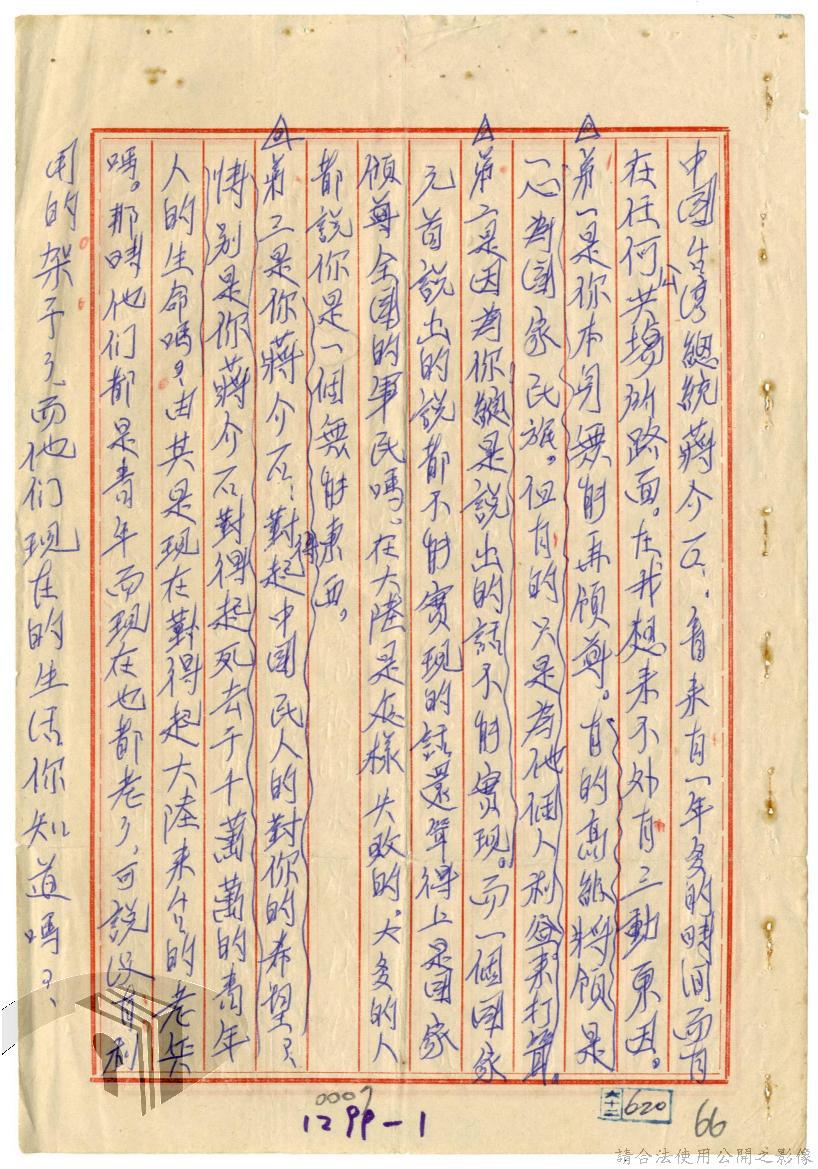 中國台湾總統蔣介石：看来有一年多的時间而有
在任何公共場所路面。在我想来不外有三動東因。
第一是你本身無能再領導。有的高級將領是
一心為國家民族。但有的只是為他個人利益来打算。
第二是因為你總是說出的話不能實现。而一個國家
元首說出的説都不能實现的話還算得上是國家
領導全國的軍民嗎。在大陸是怎樣失敗的。大多的人
都說你是一個無能東西。
第三是你蔣介石：對得起中國民人的對你的希望？
情别是你蔣介石對得起死去千千萬萬的青年
人的生命嗎？由其是现在對得起大陸来台的老兵
嗎。那時他们都是青年而现在也都老了、可說没有利
用的架子了、而他们现在的生活你知道嗎？
0007
1299-1
六十二 620
66
請合法使用公開之影像